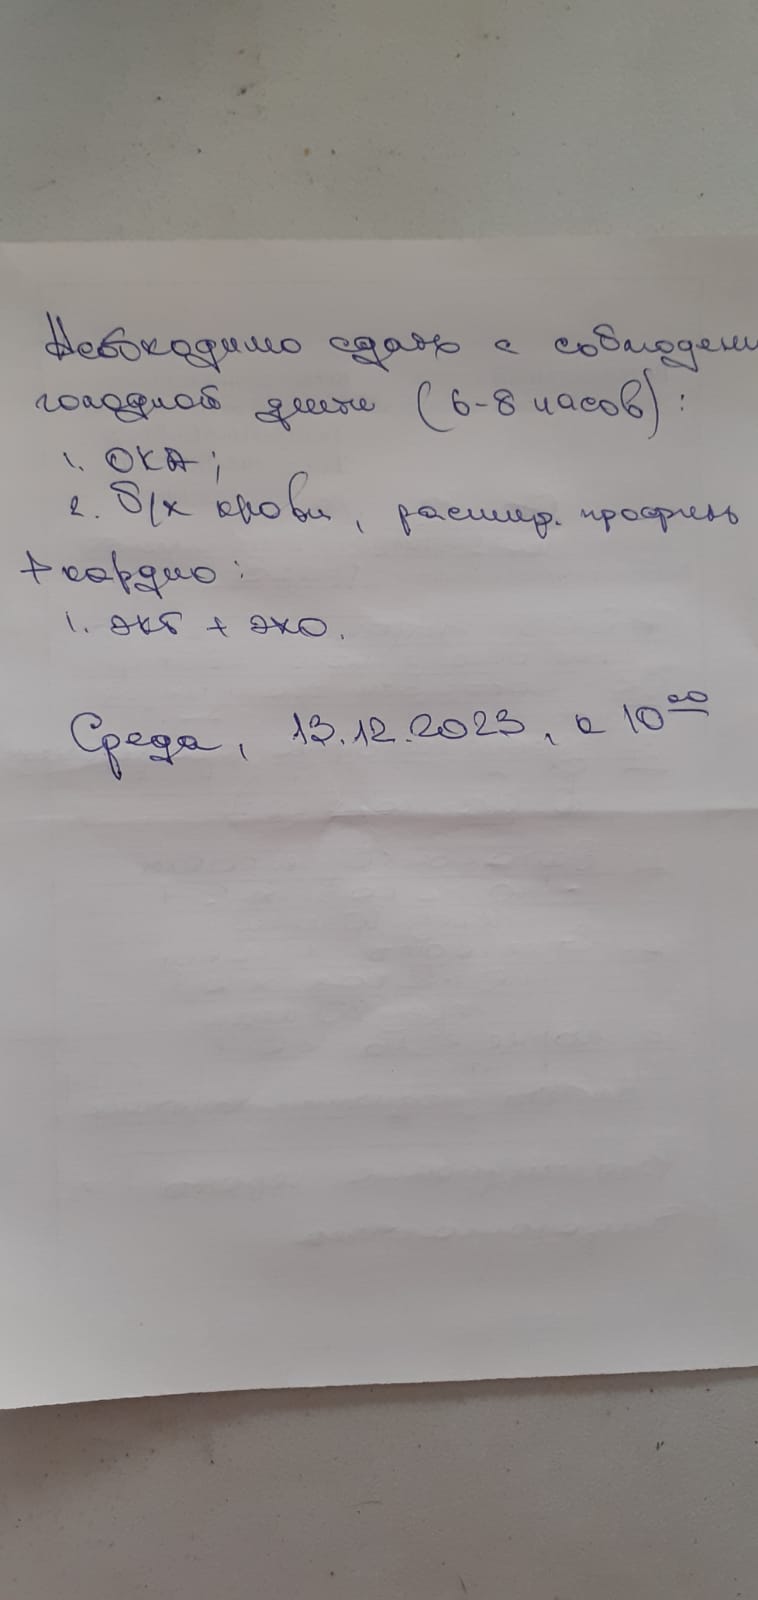 Необходимо сдать с соблюдени
голодной диеты (6-8 часов):
1. ОКА;
2. б/х крови, расшир. профиль
+ кардио:
1. ЭКГ + ЭХО.
Среда, 13.12.2023, в 10 00